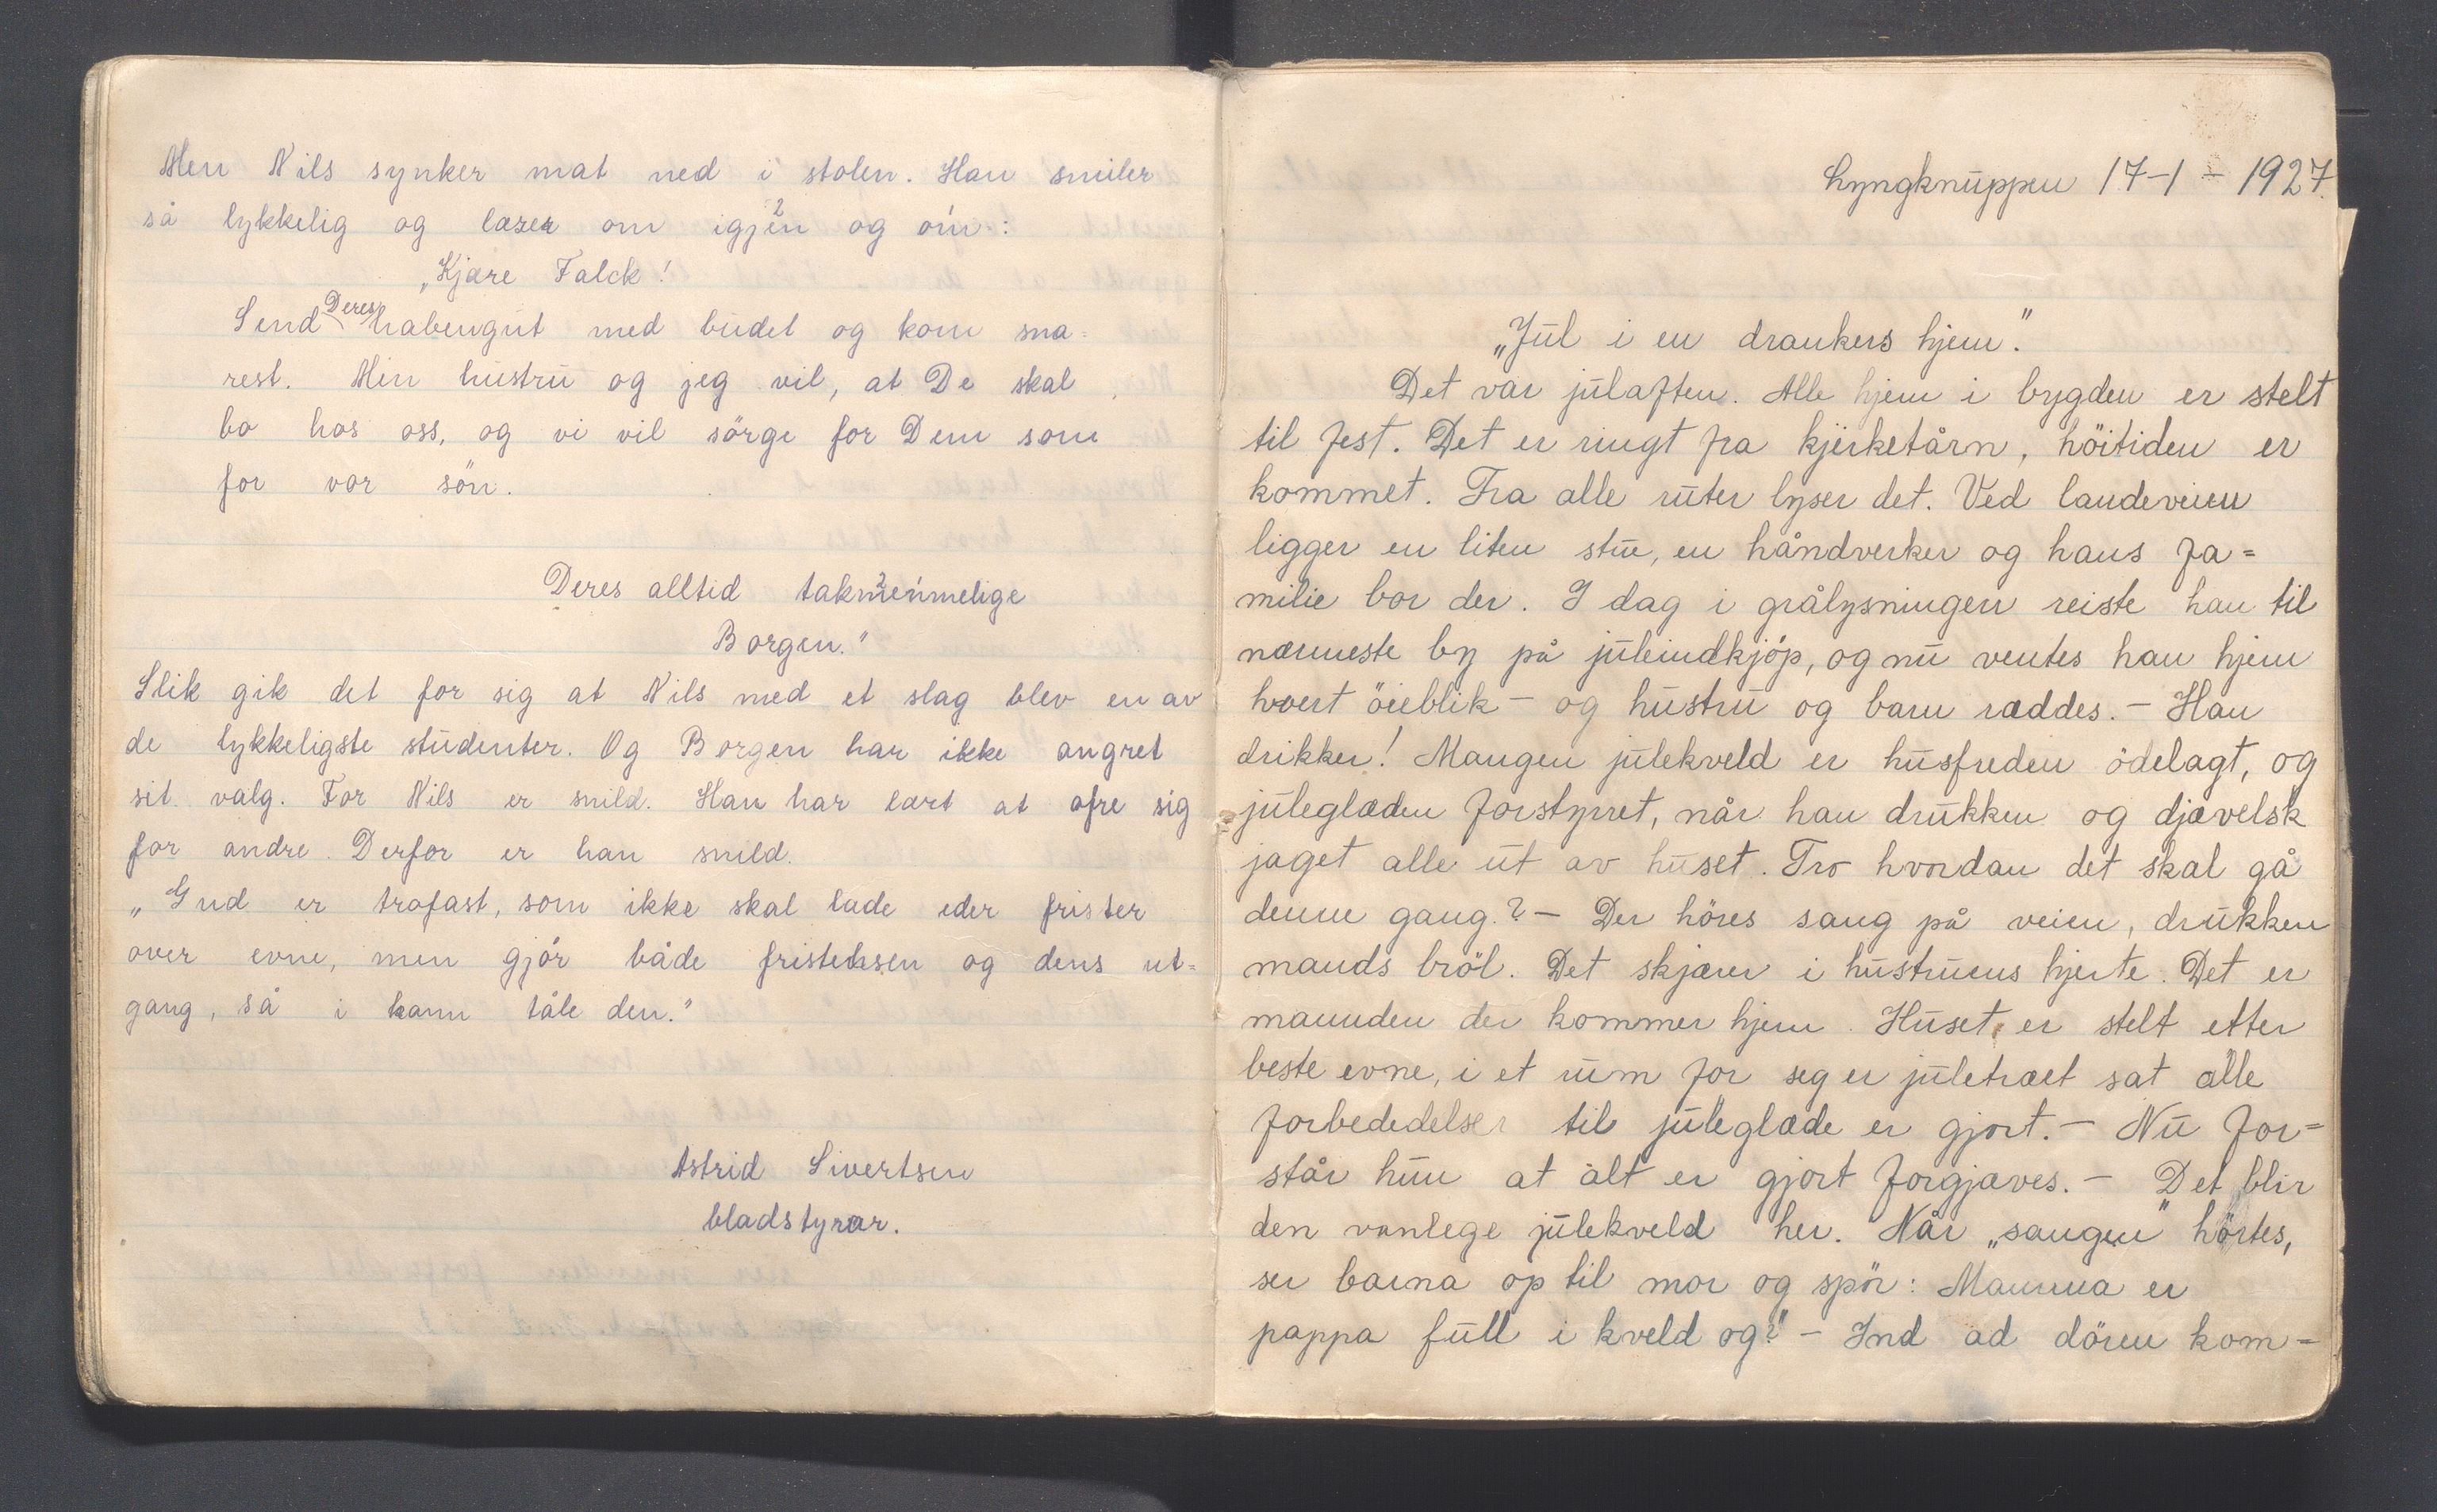 Men Nils synker mat ned i stolen. Han smiler
så lykkelig og læser om igjen og om:
„Kjære Falck!
Send Deres habengut med budet og kom sna-
rest. Min hustru og jeg vil, at De skal
bo hos oss, og vi vil sörge for Dem som
for vor sön.
Deres alltid taknemmelige
Borgen."
Slik gik det for sig at Nils med et slag blev en av
de lykkeligste studenter. Og Borgen har ikke angret
sit valg. For Nils er snild. Han har lært at ofre sig
for andre. Derfor er han snild.
„Gud er trofast, som ikke skal lade eder frister
over evne, men gjör både fristelsen og dens ut=
gang, så i kann tåle den."
Astrid Sivertsen
bladstyrar.
Lyngknuppen 17-1 - 1927.
„Jul i en drankers hjem."
Det var julaften. Alle hjem i bygden er stelt
til fest. Det er ringt fra kjerketårn, höitiden er
kommet. Fra alle ruter lyser det. Ved landeveien
ligger en liten stue, en håndverker og hans fa=
milie bor der. I dag i grålysningen reiste han til
nærmeste by på juleindkjöp, og nu ventes han hjem
hvert öieblik - og hustru og barn ræddes. - Han
drikker! Mangen julekveld er husfreden ödelagt, og
juleglæden forstyrret, når han drukken og djævelsk
jaget alle ut av huset. Tro hvordan det skal gå
denne gang? - Der höres sang på veien, drukken
mands bröl. Det skjærer i hustruens hjerte. Det er
mannden der kommer hjem. Huset er stelt etter
beste evne, i et rum for seg er juletræet sat alle
forbededelser til juleglæde er gjort. - Nu for=
står hun at alt er gjort forgjæves. - Det blir
den vanlege julekveld her. Når „sangen" hörtes,
ser barna op til mor og spör: Mamma er
pappa full i kveld og?" - Ind ad dören kom=